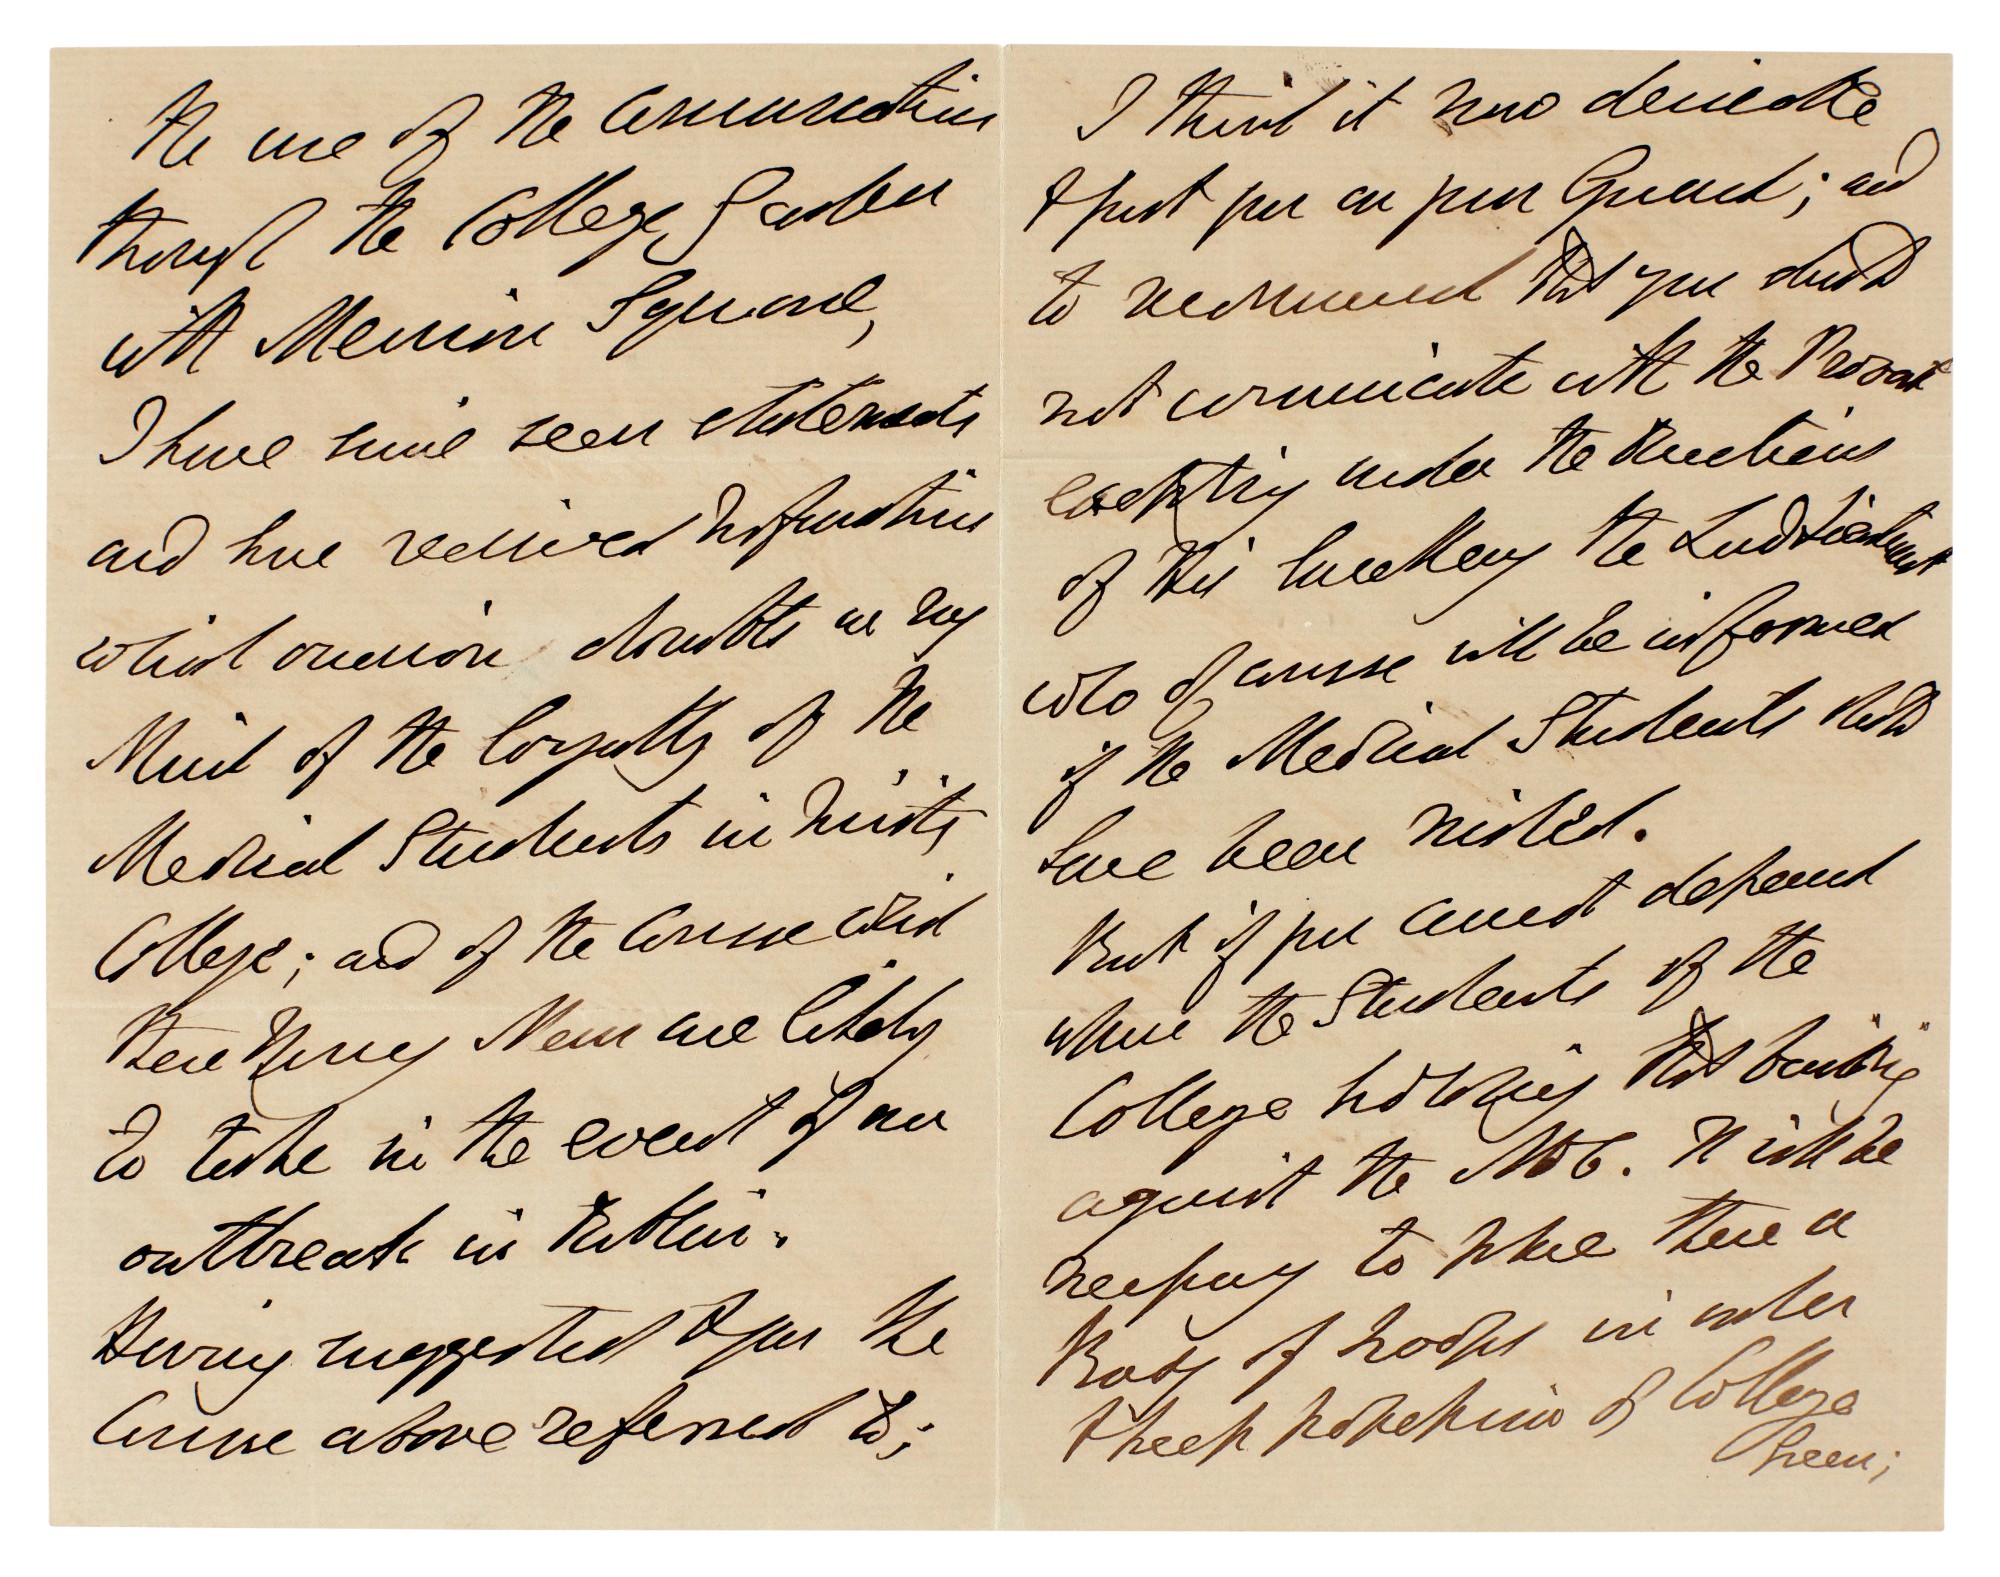 the use of the communication
through the College Garden
with Merrion Square,
I have since seen statements
and have received information
which occasion doubts in my
Mind of the loyalty of the
Medical Students in Trinity
College; and of the Course which
these Young Men are likely
to take in the event of an
outbreak in Dublin.
Having suggested to you the
Course above referred to;
I think it now desirable
to put you on your Guard; and
to recommend that you should
not communicate with the Provost
excepting under the Directions
of His Excellency the Lord Lieutenant
who of course will be informed
if the Medical Students should
have been misled.
But if you cannot depend
upon the Students of the
College holding that building
against the Mob. It will be
necessary to place there a
Body of troops in order
to keep possession of College
Green;